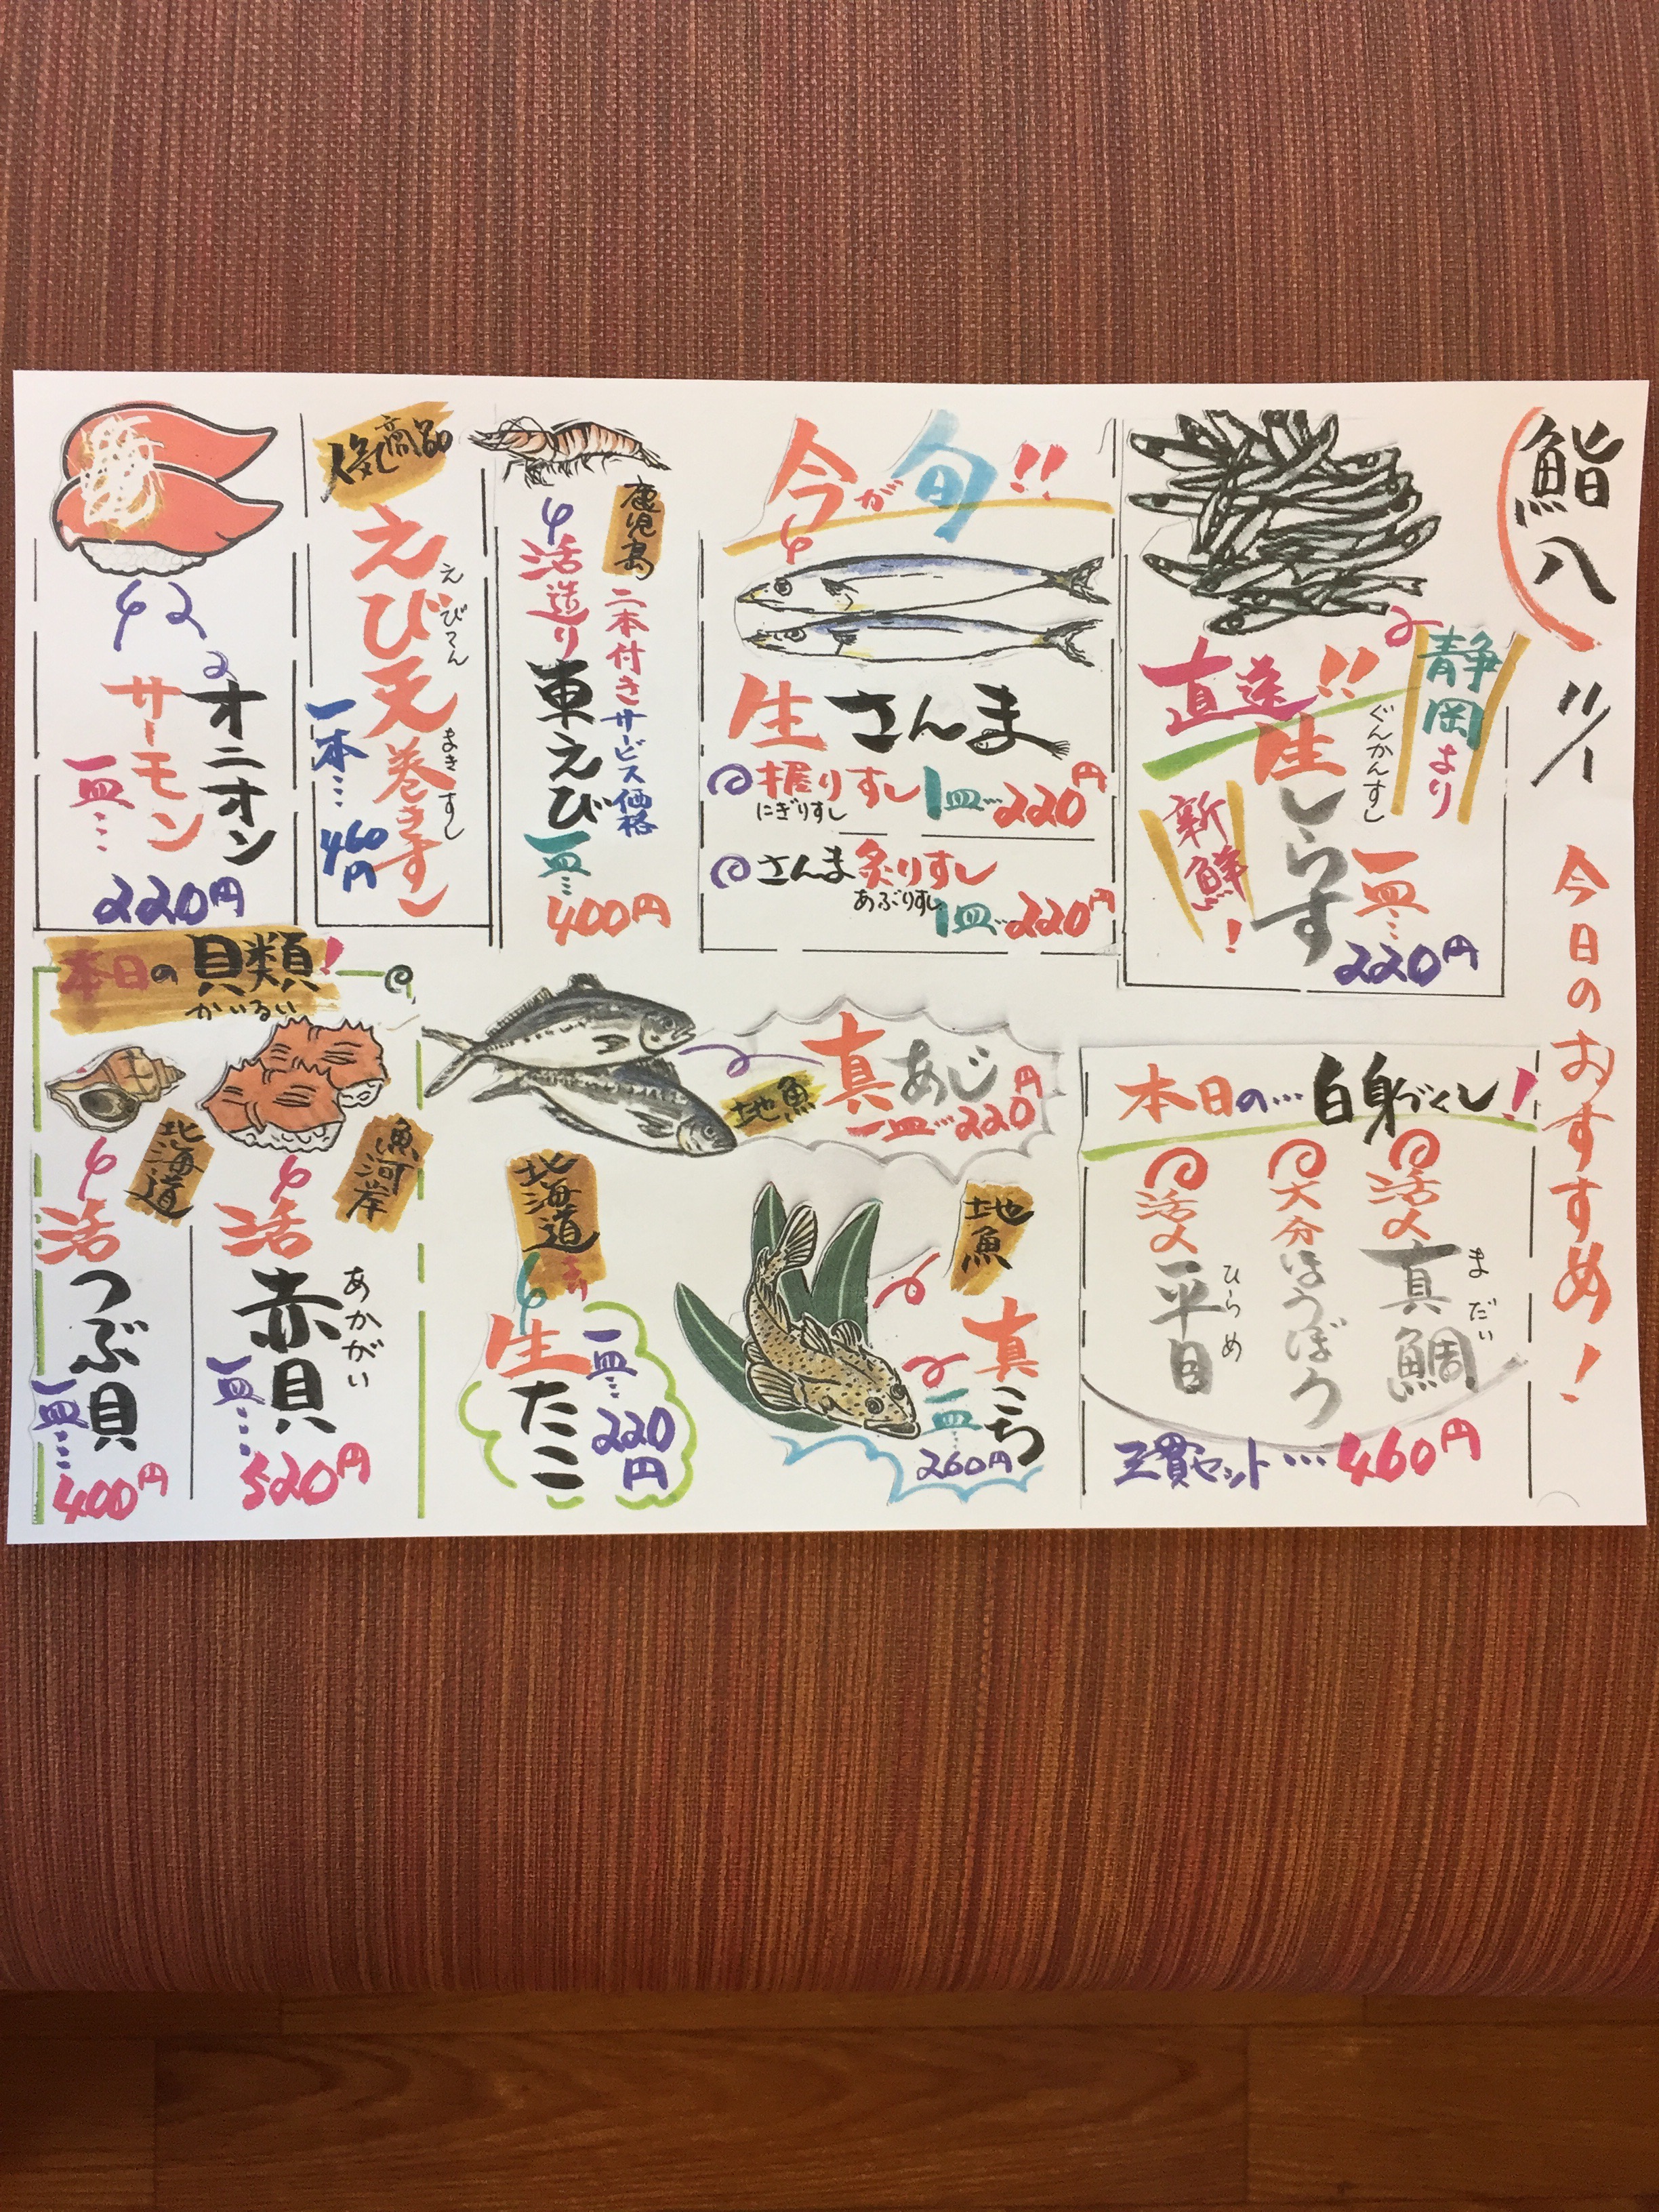 鮨八
11/1
今日のおすすめ!
静岡より
直送!!
生しらす
ぐんかんすし
新鮮!
一皿…
220円
今が旬!!
生さんま
握りすし 1皿…220円
にぎりすし
さんま炙りすし
あぶりすし
1皿…220円
鹿児島
二本付きサービス価格
活造り
車えび
一皿…
400円
人気商品
えび天巻きすし
えびてん まきすし
一本…
460円
オニオン
サーモン
一皿…
220円
本日の…白身づくし!
活〆真鯛
まだい
大分ほうぼう
活〆平目
ひらめ
三貫セット…460円
真あじ
地魚
一皿…220円
地魚
真こち
一皿…
260円
北海道より
生たこ
一皿…
220円
本日の貝類!
かいるい
魚河岸
活赤貝
あかがい
一皿…
520円
北海道
活つぶ貝
一皿…
400円